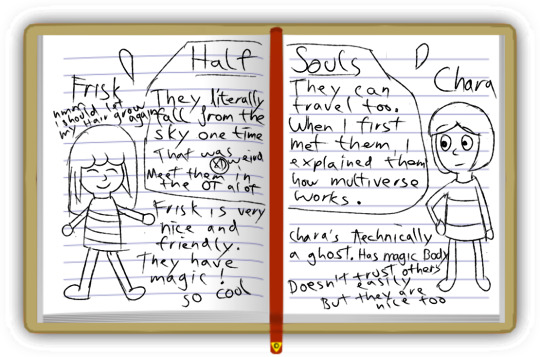 Half Souls
Frisk
hmm
I should lot
my Hair grow again
They literally
fall from the
sky one time
That was weird
XD
Meet them in
the OT alot
Frisk is very
nice and
friendly.
They have
magic!
so cool
Chara
They can
travel too.
When I first
met them, I
explained them
how multiverse
works.
Chara's technically
a ghost. Has magic Body
Doesn't trust others
easily
But they are
nice too